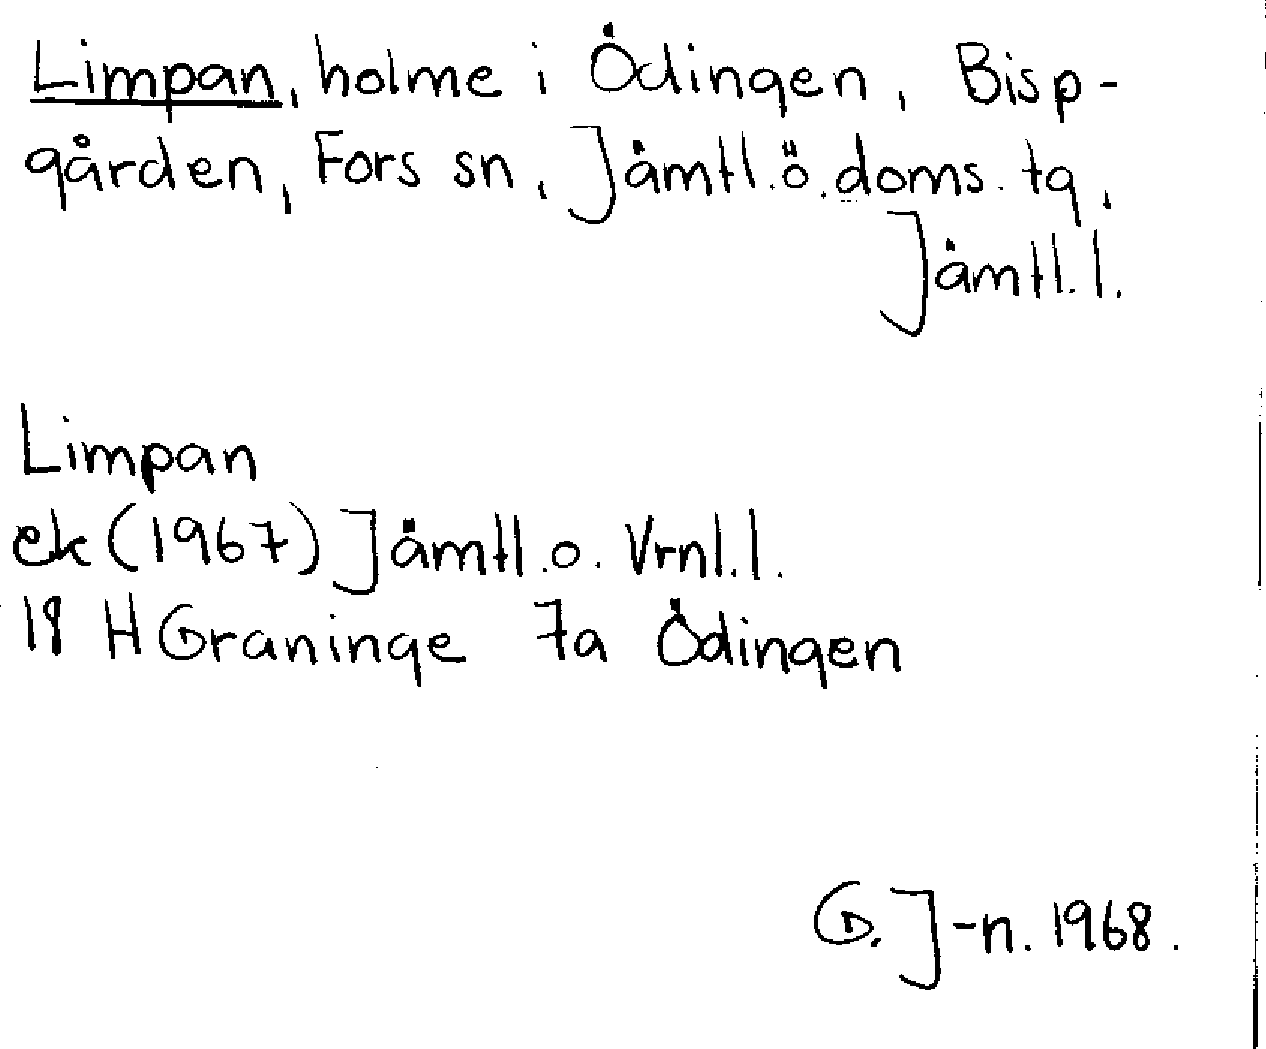 Limpan, holme i Ödingen, Bisp-
gården, Fors sn, Jämtl.ö.doms.tg,
Jämtl.l.
Limpan
ek (1967) Jämtl.o. Vrnl.l.
18 H Graninge 7a Ödingen
G. J-n. 1968.